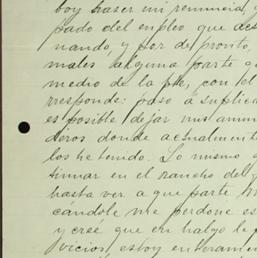 boy haser mi renuncia,
pado del empleo que ac
nando, y por de pronto,
males alguna parte
medio de la pte, con el
rresponde: paso á suplica
es posible dejar mis anim
deros donde actualment
los he tenido. Lo mismo
tinuar en el rancho del
hasta ver a que parte
cándole me perdone es
y creé que en halgo le
vicios, estoy enteramen